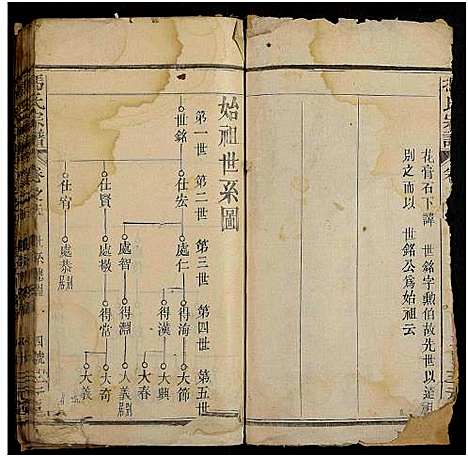 花官石下諱　世銘字勲伯故先世以道祖
別之而以　世銘公爲始祖云
始祖世系圖
第一世　第二世　第三世　第四世　第五世
世銘　仕宏　處仁　得海　大節
得漢　大春
處智　得淵　大義
仕賢　處敬　得常　大奇
大義
仕官　處恭
馮氏宗譜　卷之